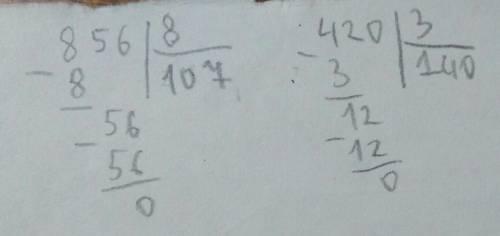 856 | 8
- 8 107
- 56
56
0
420 | 3
- 3 140
12
- 12
0